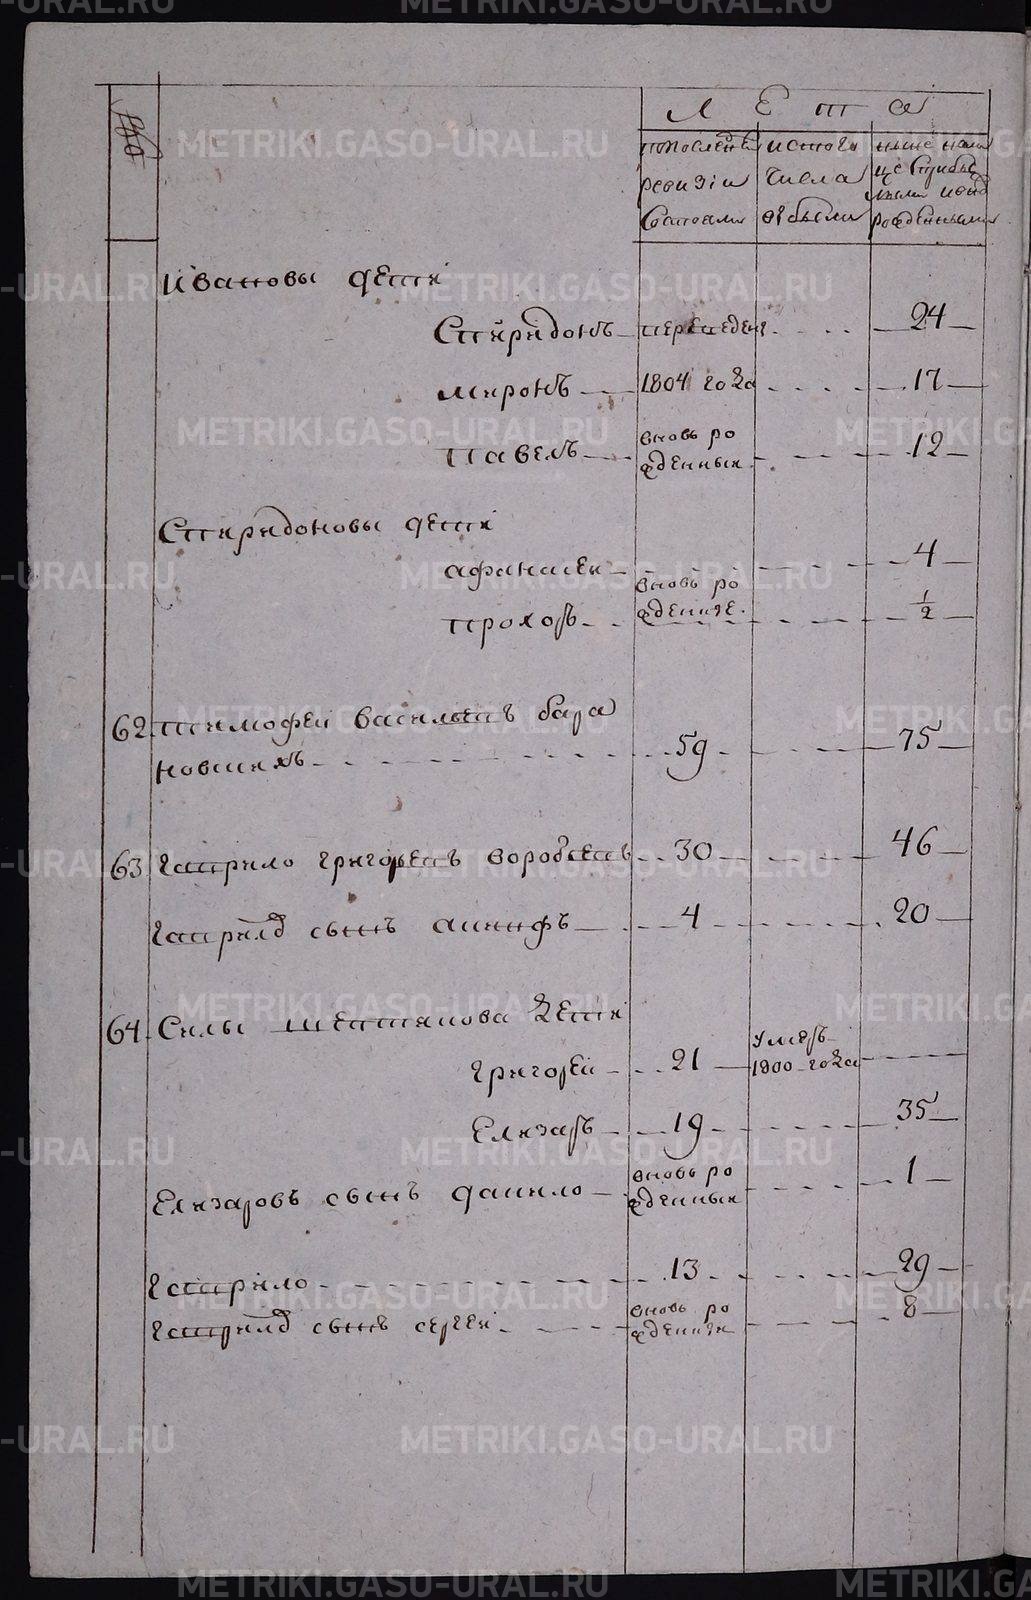 №
Лета
по последн
ревизiи
состояли
из того
числа
выбыли
ныне нали
цо с прибы
лыми и внов
рожденными
Ивановы дети
Спиридонъ перешеден 24
Миронъ 1804 года 17
Павелъ вновь ро
жденныи 12
Спиридоновы дети
Афанасеи 4
вновь ро
Прохоръ жденные. 1/2
62. Тимофеи Васильевъ Бара
новщихъ 59 75
63 Гаврило Григорьевъ Воробьевъ 30 46
Гаврилы сынъ Акинфъ 4 20
64. Силы Шептякова дети
Григореи 21 умеръ
1800 года
Елизаръ 19 35
Елизаровъ сынъ Данило вновь ро
жденныи 1
Гаврило 13 29
Гаврилы сынъ Сергеи вновь ро
жденныи 8
METRIKI.GASO-URAL.RU